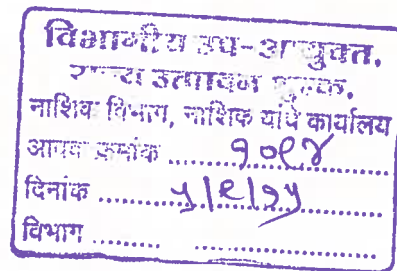 विभागीय उप-आयुक्त,
राज्य उत्पादन शुल्क,
नाशिक विभाग, नाशिक यांचे कार्यालय
आवक क्रमांक ............ १०९४
दिनांक ............ ५/९/२५
विभाग ....... ....................